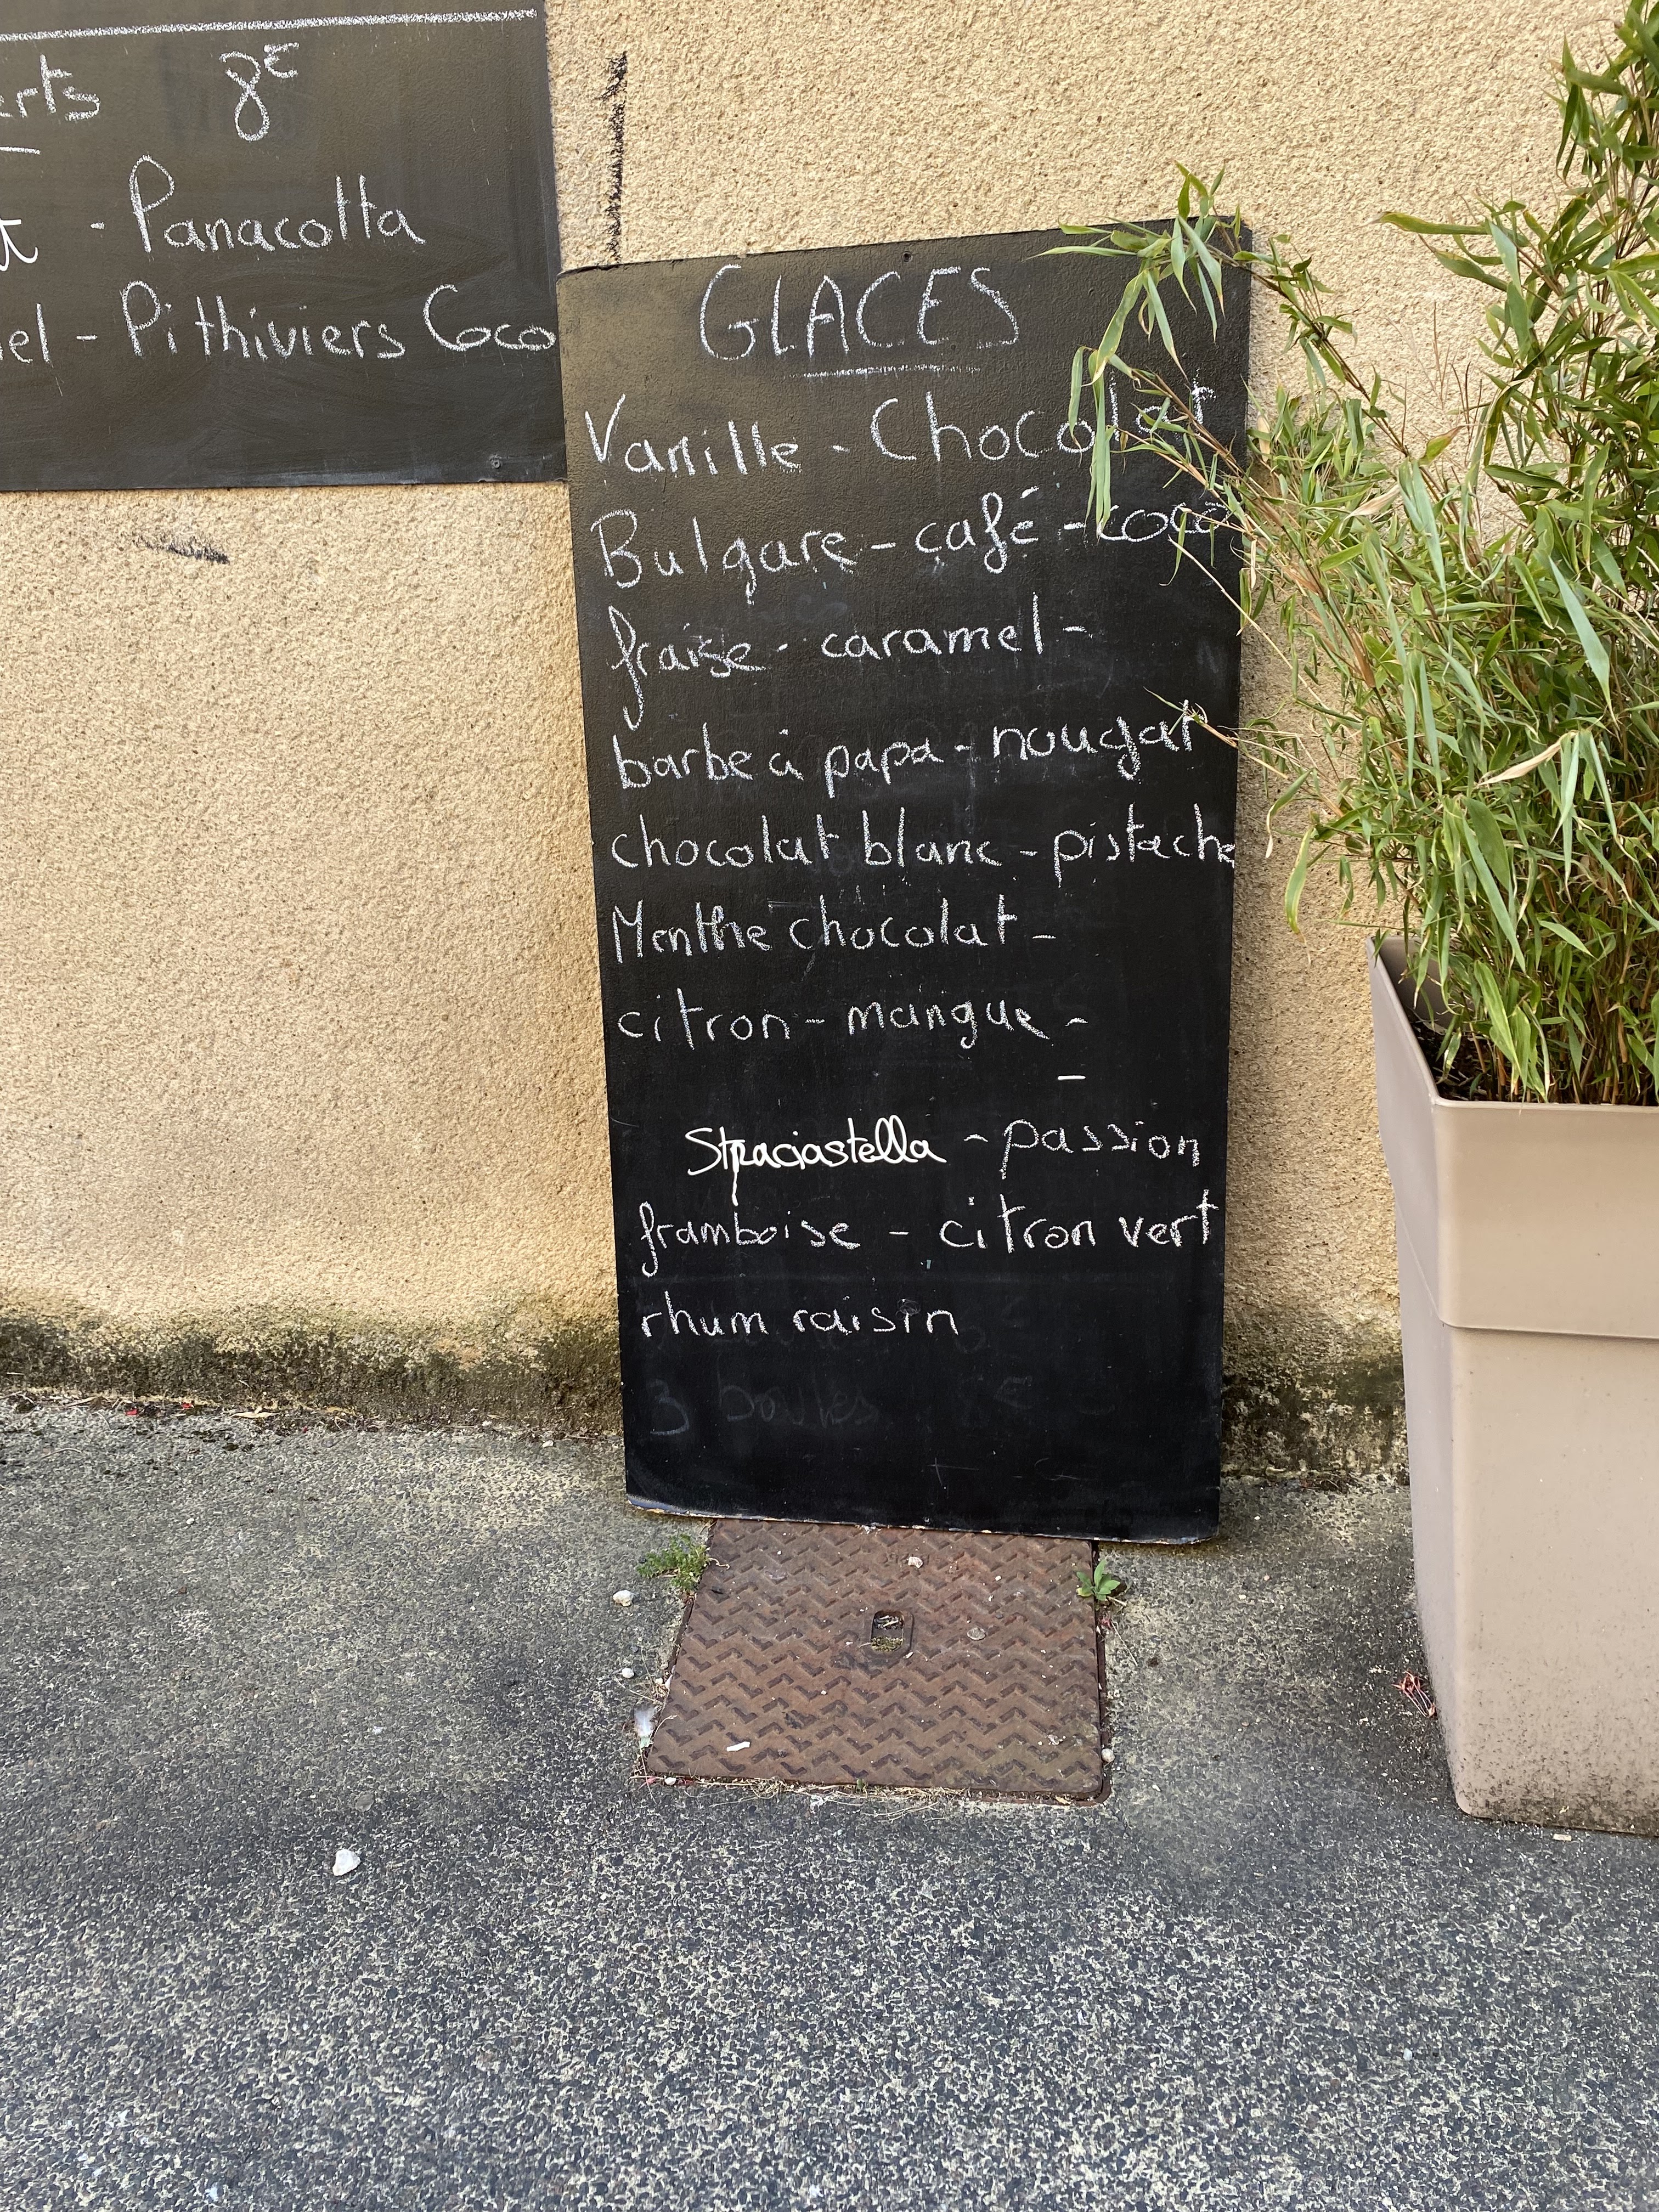 8€
- Panacotta
- Pithiviers Coco
GLACES
Vanille - Chocolat
Bulgare - café - coco
fraise - caramel -
barbe à papa - nougat
chocolat blanc - pistache
Menthe chocolat -
citron - mangue -
-
Straciastella - passion
framboise - citron vert
rhum raisin
3 boules